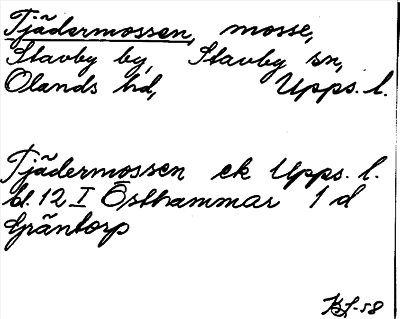 Tjädermossen, mosse,
Stavby by, Stavby sn,
Olands hd, Upps. l.
Tjädermossen ek Upps. l.
bl. 12 I Östhammar 1 d
Gräntorp
KJ-58